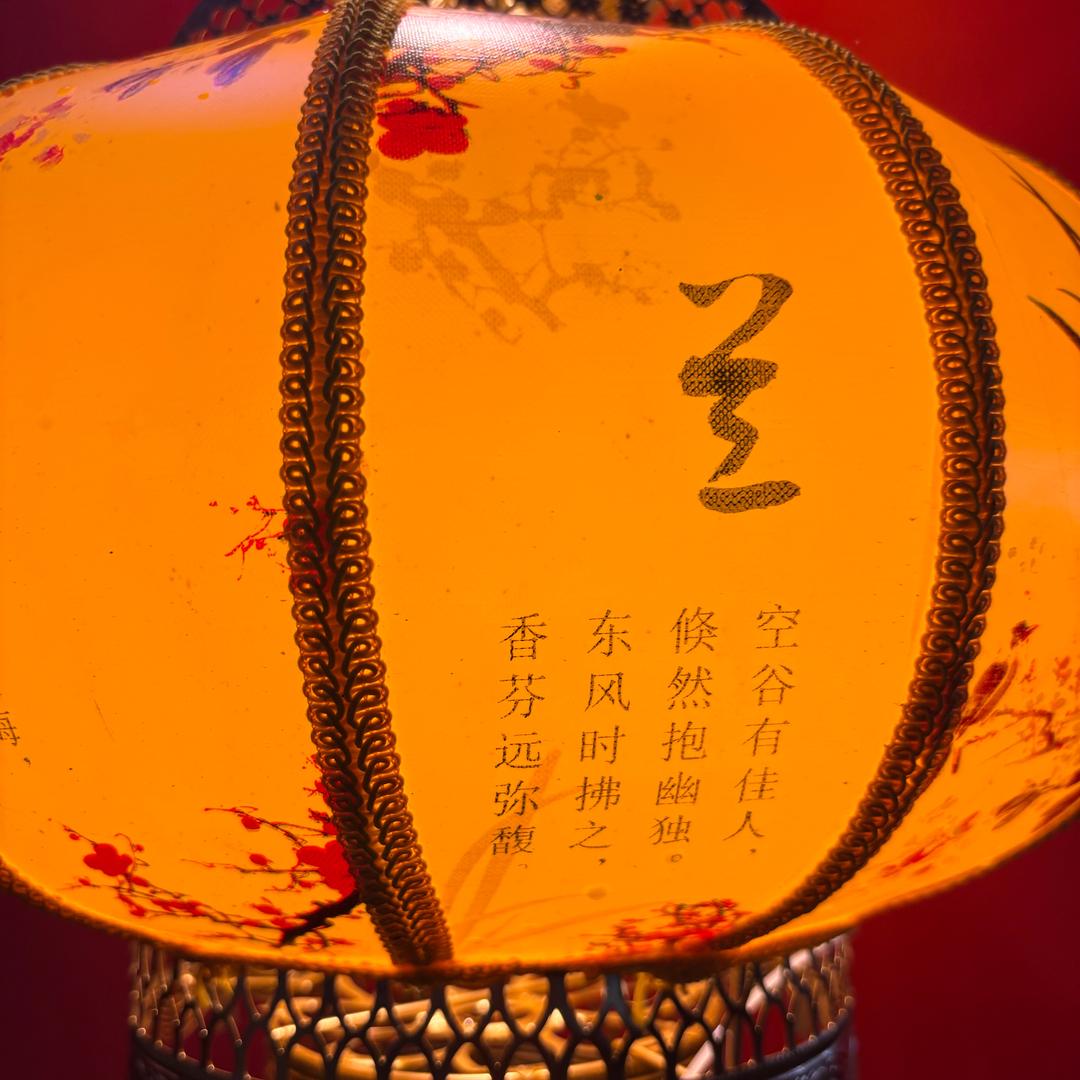 兰
空谷有佳人，
倏然抱幽独。
东风时拂之，
香芬远弥馥。